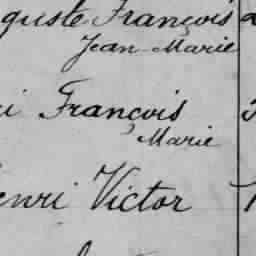 guste François
Jean Marie
ri François
Marie
enri Victor